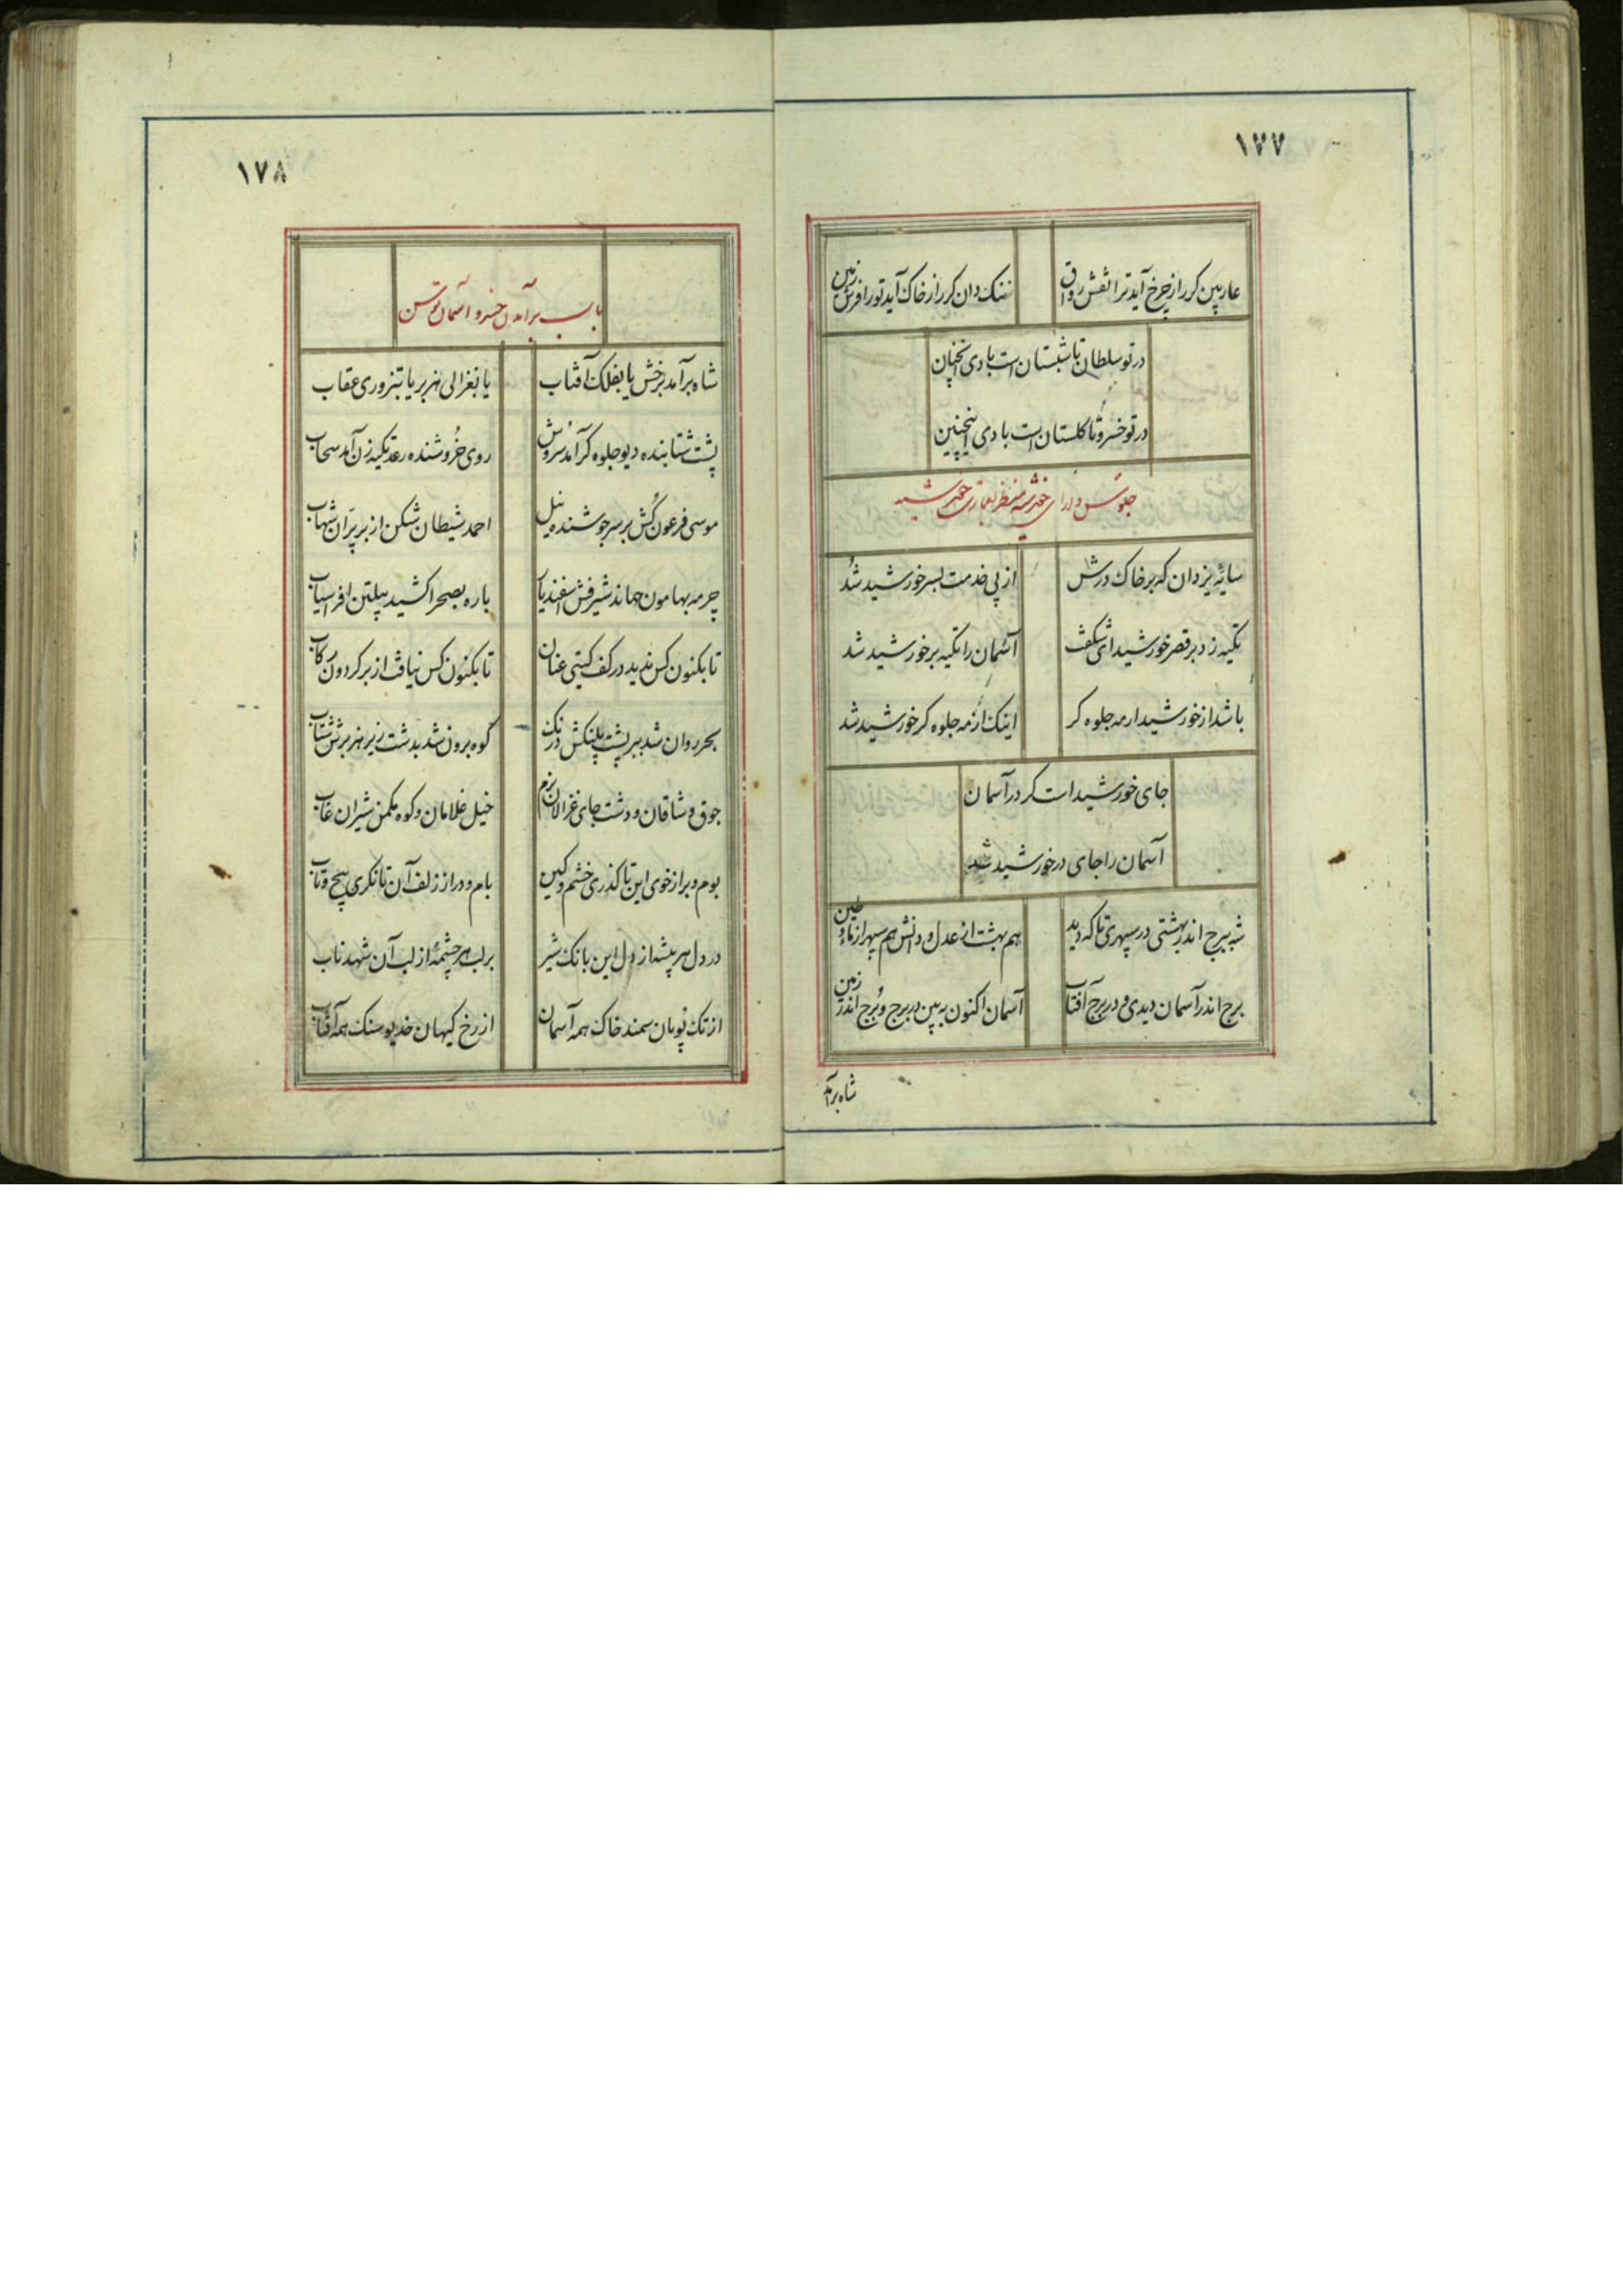 ١٧٧
عاربین کرراز چرخ آید ترا نقش رواق
ننک دان کرراز خاک آید تورا فرش زمین
در تو سلطان تا شبستان است بادی آنچنان
در تو خسرو تا کلستان است بادی اینچنین
جلوس دارای خورشید منظر بعمارت خورشید
سایهٔ یزدان که بر خاک درش
از پی خدمت بسر خورشید شد
تکیه زد بر قصر خورشید ای شکفت
آسمان را تکیه بر خورشید شد
باشد از خورشید ار مه جلوه کر
اینک از مه جلوه کر خورشید شد
جای خورشید است کر در آسمان
آسمان را جای در خورشید شد
شه ببرج اندر بهشتی در سپهری تا که دید
هم بهشت از عدل و دانش هم سپهر از ماء و طین
برج اندر آسمان دیدی و در برج آفتاب
آسمان اکنون به بین در برج و برج اندر زمین
شاه برآمد
١٧٨
باب برآمدن خسرو آسمان توسن
شاه برآمد برخش یا بفلک آفتاب
یا بغزالی هزبر یا بتزوری عقاب
پشت شتابنده دیو جلوه کر آمد سروش
روی خروشنده رعد تکیه زن آمد سحاب
موسی فرعون کش بر سر جوشنده نیل
احمد شیطان شکن از بر پران شهاب
چرمه بهامون جهاند شیرفش اسفندیار
باره بصحرا کشید پیلتن افراسیاب
تا بکنون کس ندید در کف کیتی عنان
تا بکنون کس نیافت از بر کردون رکاب
بحر روان شد ببر پشت پلنکش درنک
کوه برون شد بدشت زیر هزبرش شتاب
جوق وشاقان و دشت جای غزالان بزم
خیل غلامان و کوه مکمن شیران غاب
بوم و بر از خوی این تا کذری خشم و کین
بام و در از زلف آن تا نکری پیچ و تاب
در دل هر بیشه از دل این بانک شیر
بر لب هر چشمهٔ از لب آن شهد ناب
از تک پویان سمند خاک همه آسمان
از رخ کیهان خدیو سنک همه آفتاب